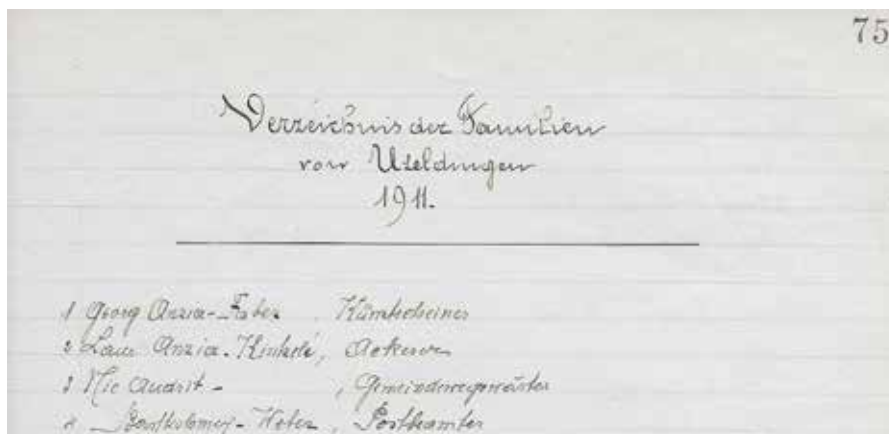 75
Verzeichnis der Familien
von Useldingen
1911.
1 Georg Anzia-Faber,
2 Anzia-Kinkelé, Ackerer
3 Nic Audrit- , Gemeindewegwärter
4 Bartholomey-Weber, Postbeamter